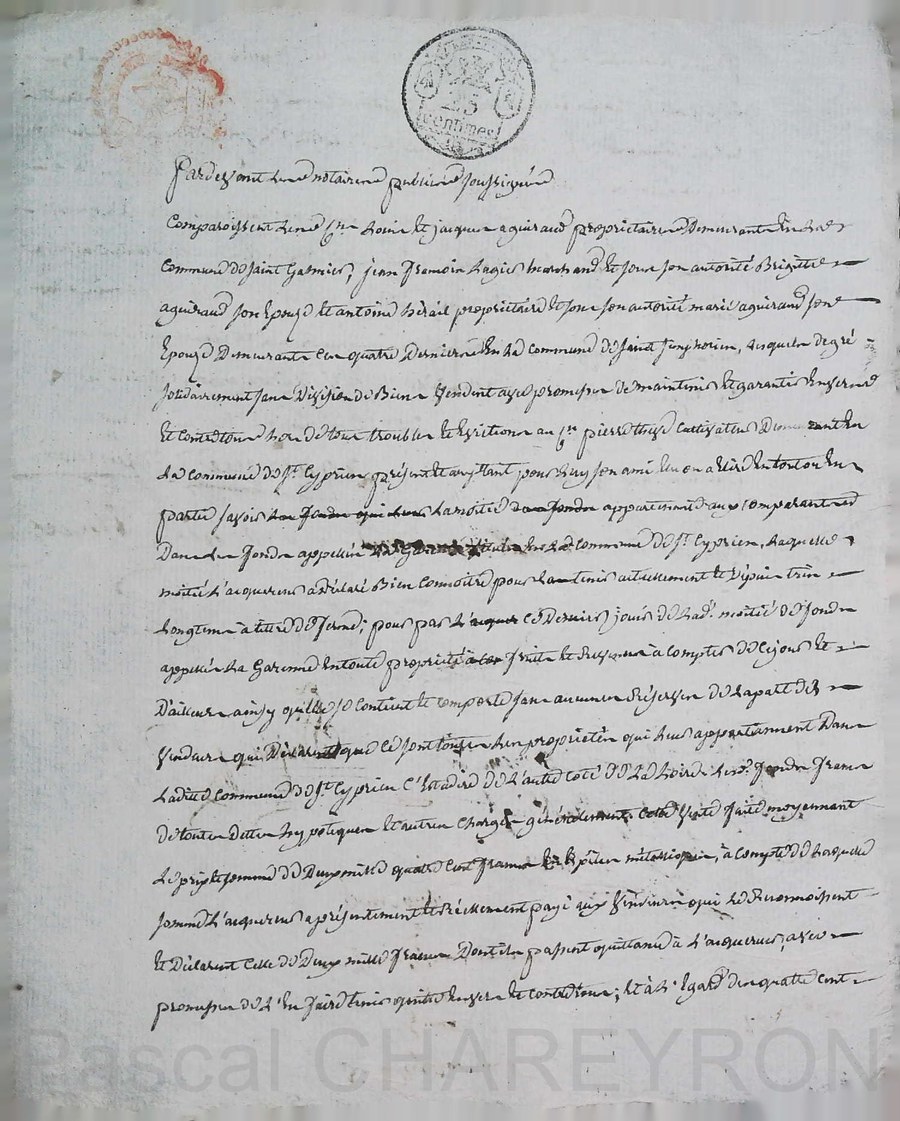 25
centimes
Pardevant Les notaires publics soussignés
Comparoissent Les Crs Louis et jacques aguiraud propriétaires Demeurants En La
Commune De saint Galmier, jean Lagier Marchand Et sous son autorité Brigitte
aguiraud son Epouse Et antoine hérail propriétaire Et sous son autorité marie aguiraud son
Epouse Demeurants Ces quatre Derniers En La Commune De saint Simphorien, Lesquels De gré
solidairement sans Division De Biens Vendent avec promesse De maintenir Et garantir Envers
Et Contre tous De tous troubles Et Evictions au Cn pierre Cultivateur Demeurant En
La Commune De St Cyprien présent Et acceptant pour Luy son ami Elu ou à Elire En tout ou En
partie savoir La moitié appartenant aux Comparants
Dans Les fonds appellés La Garenne situés En La de Commune De St Cyprien, Laquelle
moitié L'acquereur a Déclaré Bien Connoitre pour La tenir actuellement Et Depuis très
Longtems à titre De ferme; pour par L'acquereur Disposer jouir De La de moitié De fonds
appellés La Garenne En toute propriété fruits Et Revenus à Compter De Ce jour Et
D'ailleurs ainsy qu'elle se Contient Et Comporte sans aucunes Réserves De La part Des
Vendeurs qui Déclarent que Ce sont toutes Les propriétés qui Leur appartiennent Dans
Ladite Commune De St Cyprien C'est à dire De L'autre Coté De La Loire Les ds fonds francs
De toutes Dettes hypoteques Et autres Charges généralement. Cette Vente faite moyennant
Le prix Et somme De Deux mille quatre Cent francs En Espèces métalliques, à Compte De Laquelle
somme L'acquereur a présentement Et Réellement payé aux Vendeurs qui Le Reconnoissent
Et Déclarent Celle De Deux mille francs Dont ils passent quittance à L'acquereur, avec
promesse De L'En faire tenir quitte Envers Et Contre tous; Et à L'Egard Des quatre Cent
Pascal CHAREYRON